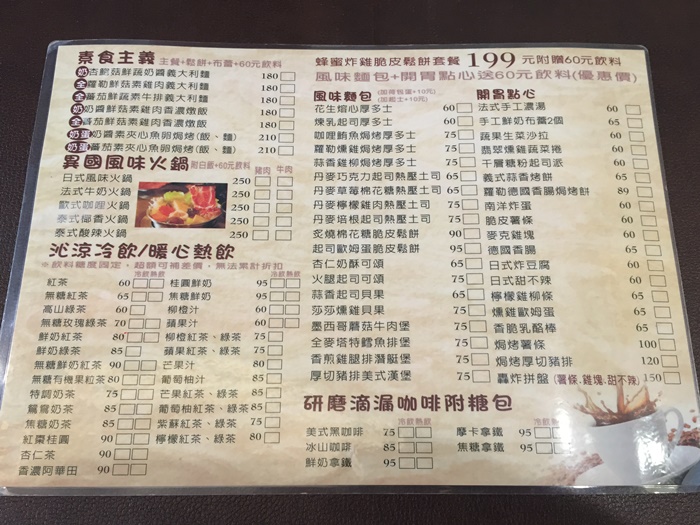 素食主義 主餐+鬆餅+布蕾+60元飲料
奶 杏鮑菇鮮蔬奶醬義大利麵 180
全 羅勒鮮菇素雞肉義大利麵 180
全 蕃茄鮮蔬素牛排義大利麵 180
奶 奶醬鮮菇素雞肉香濃燉飯 180
全 蕃茄鮮菇素雞肉香濃燉飯 180
奶蛋 奶醬素夾心魚卵焗烤(飯、麵) 210
奶蛋 蕃茄素夾心魚卵焗烤(飯、麵) 210
異國風味火鍋 附白飯+60元飲料 豬肉 牛肉
日式風味火鍋 250
法式牛奶火鍋 250
歐式咖哩火鍋 250
泰式椰香火鍋 250
泰式酸辣火鍋 250
沁涼冷飲/暖心熱飲
※飲料糖度固定，超額可補差價，無法累計折扣
冷飲熱飲 冷飲熱飲
紅茶 60 桂圓鮮奶 95
無糖紅茶 65 焦糖鮮奶 95
高山綠茶 60 柳橙汁 75
無糖玫瑰綠茶 70 蘋果汁 60
鮮奶紅茶 80 柳橙紅茶、綠茶 75
鮮奶綠茶 85 蘋果紅茶、綠茶 75
無糖鮮奶紅茶 90 芒果汁 60
無糖有機果粒茶 80 葡萄柚汁 75
特調奶茶 85 芒果紅茶、綠茶 75
鴛鴦奶茶 85 葡萄柚紅茶、綠茶 80
焦糖奶茶 85 紫蘇紅茶、綠茶 75
紅棗桂圓 90 檸檬紅茶、綠茶 80
杏仁茶 85
香濃阿華田 90
蜂蜜炸雞脆皮鬆餅套餐 199 元附贈60元飲料
風味麵包+開胃點心送60元飲料(優惠價)
風味麵包 (加荷包蛋+10元) (加起士+10元)
花生熔心厚多士 60
煉乳起司厚多士 60
咖哩鮪魚焗烤厚多士 65
羅勒燻雞焗烤厚多士 65
蒜香雞柳焗烤厚多士 65
丹麥巧克力起司熱壓土司 65
丹麥草莓棉花糖熱壓土司 60
丹麥檸檬雞肉起司熱壓土司 60
丹麥培根起司熱壓土司 60
炙燒棉花糖脆皮鬆餅 90
起司歐姆蛋脆皮鬆餅 90
杏仁奶酥可頌 65
火腿起司可頌 75
蒜香起司貝果 65
莎莎燻雞貝果 75
墨西哥蘑菇牛肉堡 75
全麥塔特鱈魚排堡 75
香煎雞腿排潛艇堡 75
厚切豬排美式漢堡 75
開胃點心
法式手工濃湯 60
手工鮮奶布蕾2個 60
蔬果生菜沙拉 60
翡翠燻雞蔬菜捲 60
千層糖粉起司派 60
義式蒜香烤餅 60
羅勒德國香腸焗烤餅 89
南洋炸蛋 60
脆皮薯條 60
麥克雞塊 60
德國香腸 60
日式炸豆腐 60
日式甜不辣 60
檸檬雞柳條 60
燻雞歐姆蛋 65
香脆乳酪棒 65
焗烤薯條 100
焗烤厚切豬排 120
轟炸拼盤(薯條.雞塊.甜不辣) 150
研磨滴漏咖啡附糖包
冷飲熱飲 冷飲熱飲
美式黑咖啡 75 摩卡拿鐵 95
冰山咖啡 85 焦糖拿鐵 95
鮮奶拿鐵 95